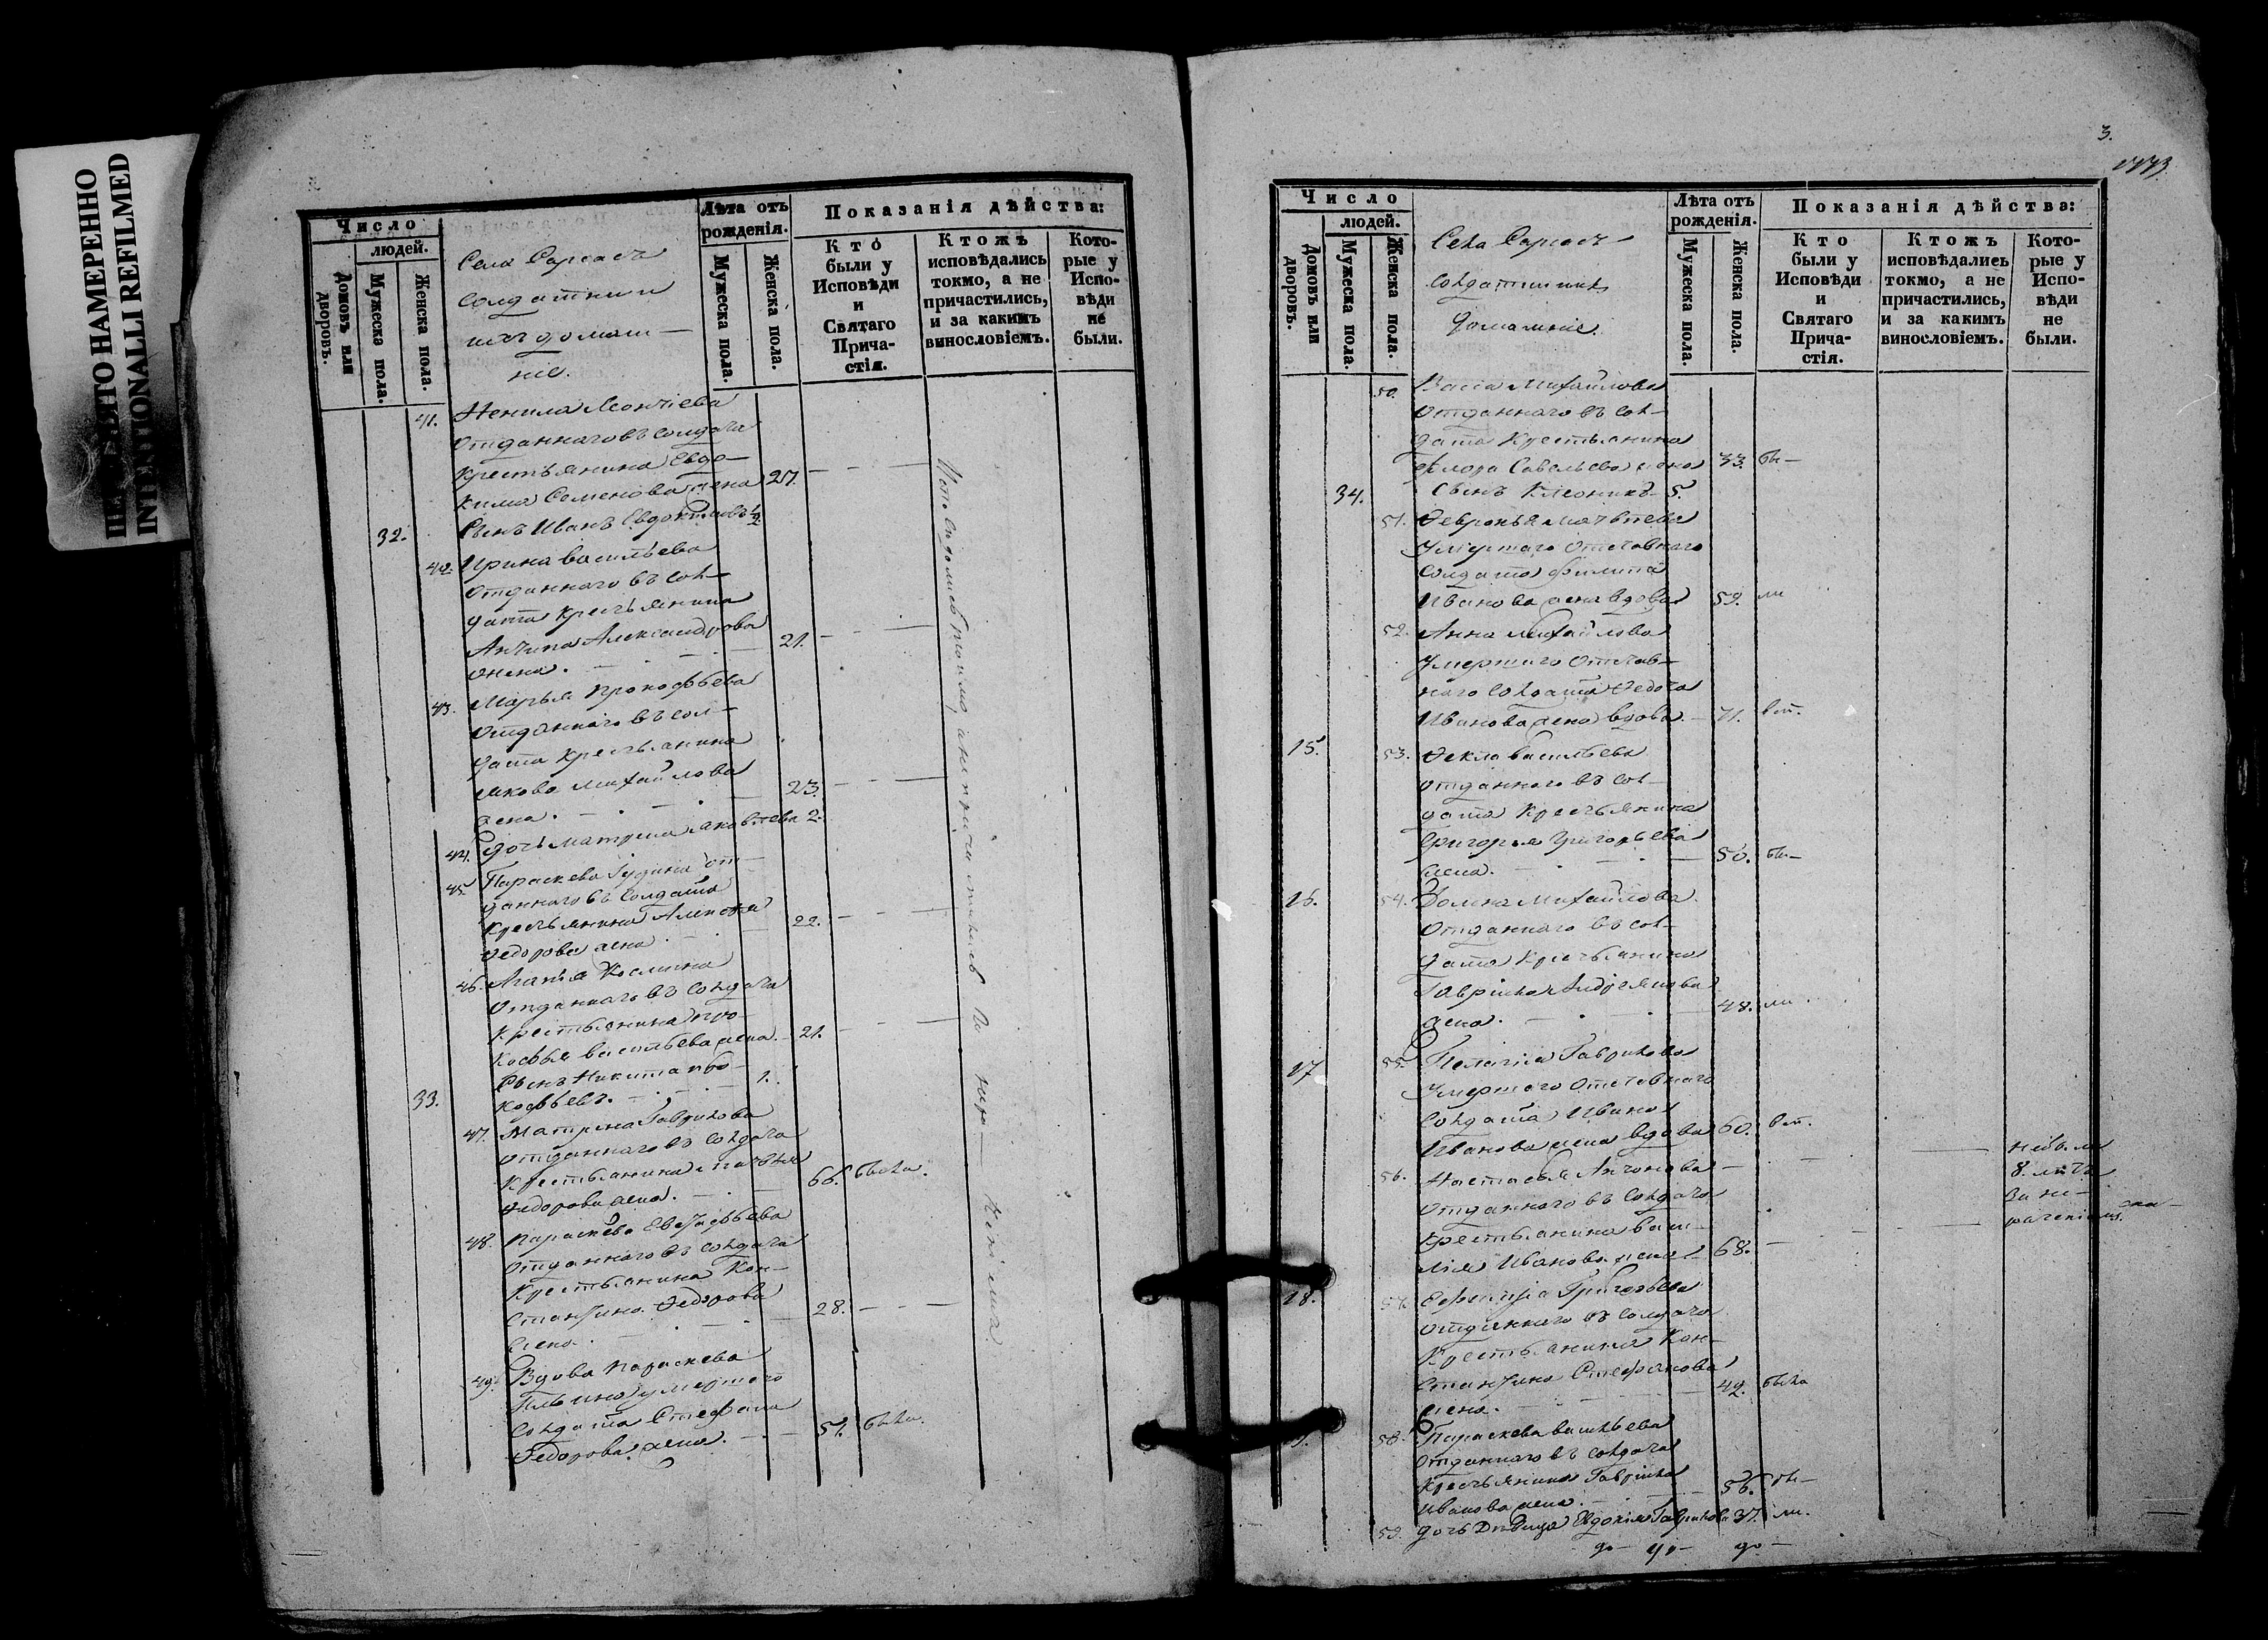 НАМЕРЕННО
INTENTIONALLI REFILMED
Число
людей.
Домовъ или дворовъ.
Мужеска пола.
Женска пола.
Села
Солдатки и
ихъ домаш-
ніе.
Лѣта отъ рожденія.
Мужеска пола.
Женска пола.
Показанія дѣйства:
Кто были у Исповѣди и Святаго Прича-стія.
Ктожъ исповѣдались токмо, а не причастились, и за какимъ винословіемъ.
Кото-рые у Испо-вѣди не были.
41. Ненила
отданнаго въ солдата
Крестьянина Евдо-
кима Семенова жена 27.
32. Сынъ Иванъ Евдокимовъ
42. Ирина Васильева
отданнаго въ сол-
дата Крестьянина
Антипа Александрова
жена. 21.
43. Марья Прокофьева
отданнаго въ сол-
дата Крестьянина
Якова Михайлова
жена. 23.
44. дочь Матрена Яковлева 2.
45. Параскева Іудина от-
даннаго въ Солдата
Крестьянина Алексея
Федорова жена 22.
46. Агапія Космина
отданнаго въ солдата
Крестьянина Про-
кофья Васильева жена. 21.
33. Сынъ Никита Про-
кофьевъ. 1.
47. Матрена Гаврилова
отданнаго въ солдата
Крестьянина
Федорова жена. 66. была.
48. Параскева Евстафьева
отданнаго въ солдата
Крестьянина Кон-
стантина Федорова
жена. 28.
49. Вдова Параскева
Ильина умершаго
солдата Стефана
Федорова жена. 51. была.
3.
Число
людей.
Домовъ или дворовъ.
Мужеска пола.
Женска пола.
Села
солдатки и ихъ
домашніе.
Лѣта отъ рожденія.
Мужеска пола.
Женска пола.
Показанія дѣйства:
Кто были у Исповѣди и Святаго Прича-стія.
Ктожъ исповѣдались токмо, а не причастились, и за какимъ винословіемъ.
Кото-рые у Испо-вѣди не были.
50. Васса Михайлова
отданнаго въ сол-
дата Крестьянина
Флора Савельева жена 33. бы-
34. Сынъ 5.
51. Февронья Матвѣева
Умершаго отставнаго
солдата Филипа
Иванова жена вдова 59. ли
52. Анна Михайлова
Умершаго отстав-
наго солдата Федота
Иванова жена вдова. 71.
15. 53. Фекла Васильева
отданнаго въ сол-
дата Крестьянина
Григорья Григорьева
жена. 50. бы-
16. 54. Домна Михайлова
отданнаго въ сол-
дата Крестьянина
Гаврила Андреянова
жена. 48. ли
17 55. Пелагія Гаврилова
Умершаго отставнаго
солдата Ивана
Иванова жена вдова 60.
56. Настасья Антонова
отданнаго въ солдата
Крестьянина Васи-
лія Иванова жена 68.
8. лѣтъ
за не-
раченіемъ.
18. 57. Ефимія Григорьева
отданнаго въ солдата
Крестьянина Кон-
стантина Стефанова
жена. 42. была
58. Параскева Васильева
отданнаго въ солдата
Крестьянина Гаврила
Иванова жена. 56. бы-
59. дочь Дѣвица Евдокія Гаврилова 37. ли.